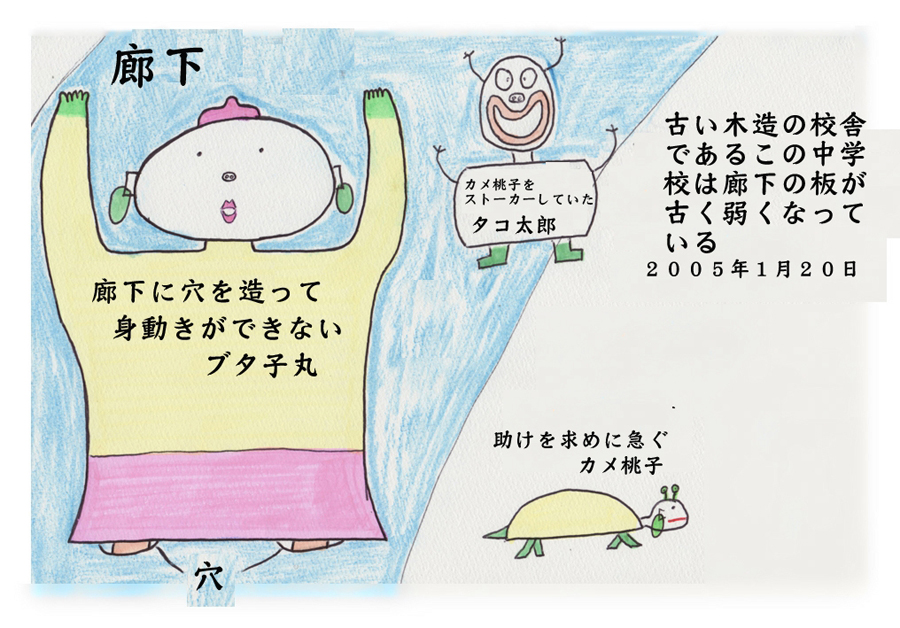 廊下
カメ桃子を
ストーカーしていた
タコ太郎
古い木造の校舎
であるこの中学
校は廊下の板が
古く弱くなって
いる
2005年1月20日
廊下に穴を造って
身動きができない
ブタ子丸
助けを求めに急ぐ
カメ桃子
穴